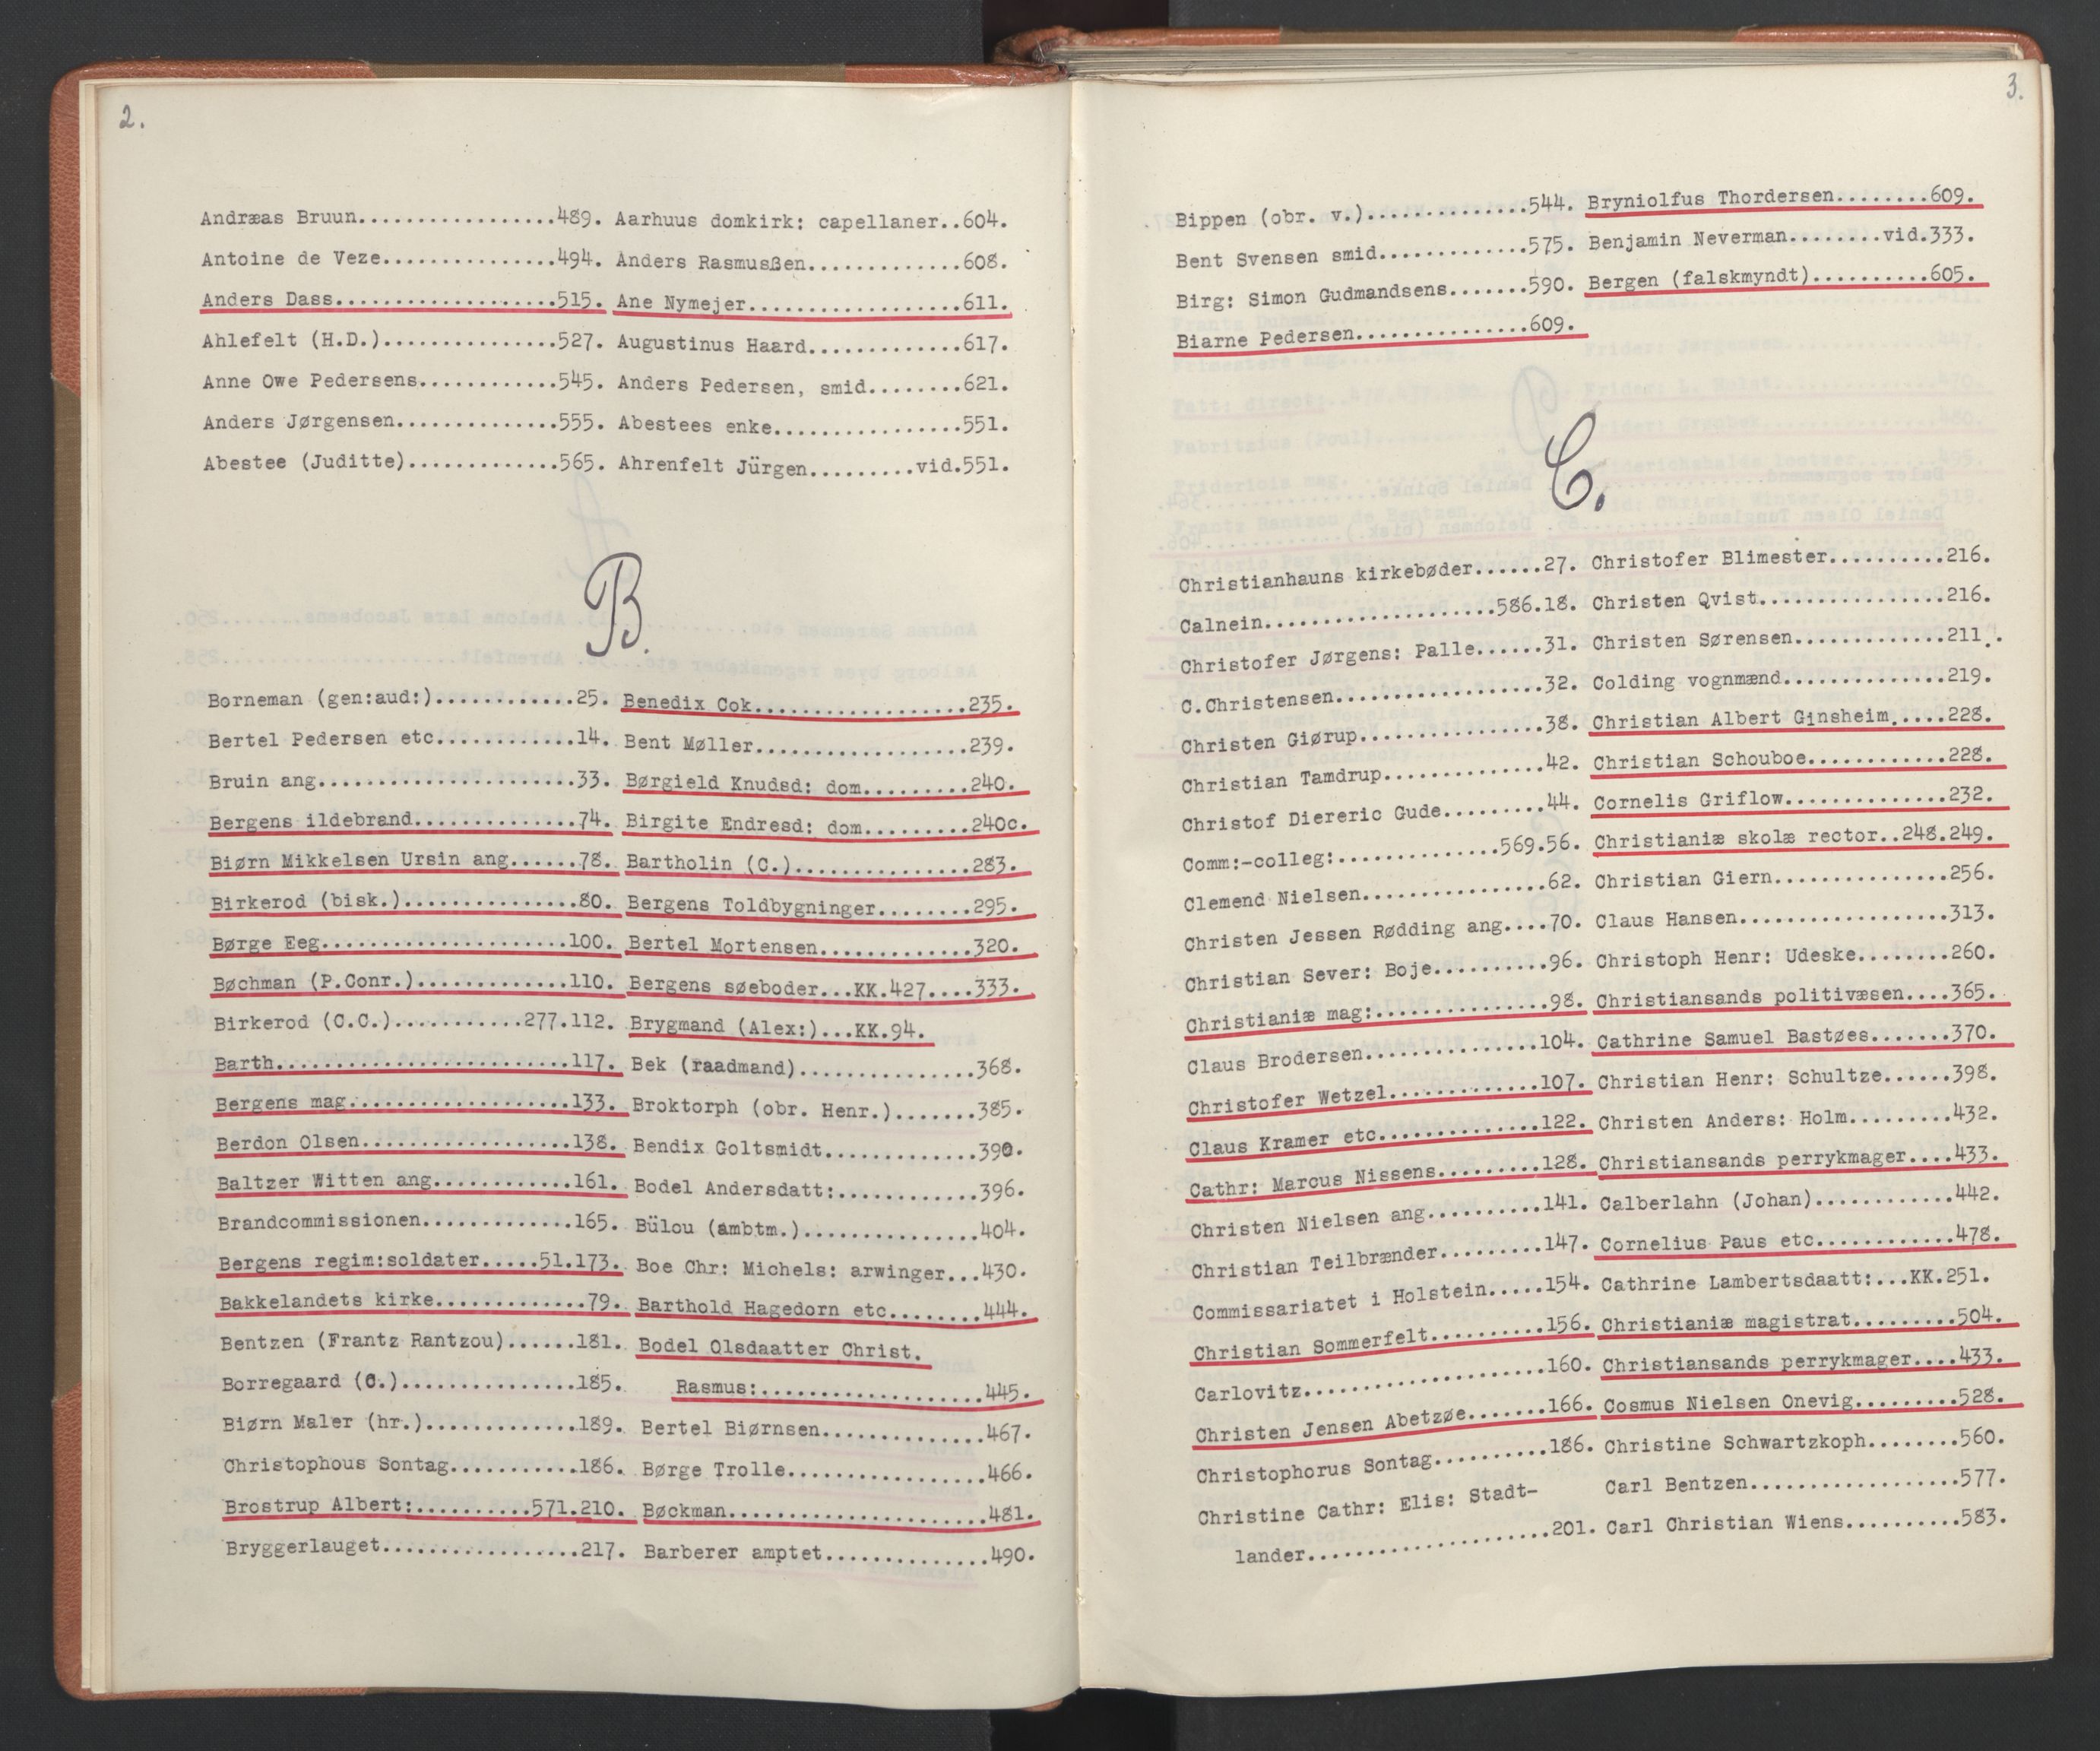 2.
Andræas Bruun.................489.
Antoine de Veze...............494.
Anders Dass...................515.
Ahlefelt (H.D.)...............527.
Anne Owe Pedersens............545.
Anders Jørgensen..............555.
Abestee (Juditte).............565.
Aarhuus domkirk: capellaner..604.
Anders Rasmusßen.............608.
Ane Nymejer..................611.
Augustinus Haard.............617.
Anders Pedersen, smid........621.
Abestees enke................551.
Ahrenfelt Jürgen.........vid.551.
B.
Borneman (gen:aud:)............25.
Bertel Pedersen etc............14.
Bruin ang......................33.
Bergens ildebrand..............74.
Biørn Mikkelsen Ursin ang......78.
Birkerod (bisk.)...............80.
Børge Eeg.....................100.
Bøchman (P.Conr.).............110.
Birkerod (C.C.)...........277.112.
Barth.........................117.
Bergens mag...................133.
Berdon Olsen..................138.
Baltzer Witten ang............161.
Brandcommissionen.............165.
Bergens regim:soldater.....51.173.
Bakkelandets kirke.............79.
Bentzen (Frantz Rantzou)......181.
Borregaard (C.)...............185.
Biørn Maler (hr.).............189.
Christophous Sontag...........186.
Brostrup Albert:..........571.210.
Bryggerlauget.................217.
Benedix Cok..................235.
Bent Møller..................239.
Børgield Knudsd: dom.........240.
Birgite Endresd: dom.........240c.
Bartholin (C.)...............283.
Bergens Toldbygninger........295.
Bertel Mortensen.............320.
Bergens søeboder...KK.427....333.
Brygmand (Alex:)...KK.94.
Bek (raadmand)...............368.
Broktorph (obr. Henr.).......385.
Bendix Goltsmidt.............390.
Bodel Andersdatt:............396.
Bülou (ambtm.)...............404.
Boe Chr: Michels: arwinger...430.
Barthold Hagedorn etc........444.
Bodel Olsdaatter Christ.
Rasmus:...................445.
Bertel Biørnsen..............467.
Børge Trolle.................466.
Bøckman......................481.
Barberer amptet..............490.
3.
Bippen (obr. v.)..............544.
Bent Svensen smid.............575.
Birg: Simon Gudmandsens.......590.
Biarne Pedersen...............609.
Bryniolfus Thordersen........609.
Benjamin Neverman........vid.333.
Bergen (falskmyndt)..........605.
C.
Christianhauns kirkebøder......27.
Calnein....................586.18.
Christofer Jørgens: Palle......31.
C.Christensen..................32.
Christen Giørup................38.
Christian Tamdrup..............42.
Christof Diereric Gude.........44.
Comm:-colleg:..............569.56.
Clemend Nielsen................62.
Christen Jessen Rødding ang....70.
Christian Sever: Boje..........96.
Christianiæ mag:...............98.
Claus Brodersen...............104.
Christofer Wetzel.............107.
Claus Kramer etc..............122.
Cathr: Marcus Nissens.........128.
Christen Nielsen ang..........141.
Christian Teilbrænder.........147.
Commissariatet i Holstein.....154.
Christian Sommerfelt..........156.
Carlovitz.....................160.
Christen Jensen Abetzøe.......166.
Christophorus Sontag..........186.
Christine Cathr: Elis: Stadt-
lander.....................201.
Christofer Blimester..........216.
Christen Qvist................216.
Christen Sørensen.............211.
Colding vognmænd..............219.
Christian Albert Ginsheim.....228.
Christian Schouboe............228.
Cornelis Griflow..............232.
Christianiæ skolæ rector..248.249.
Christian Giern...............256.
Claus Hansen..................313.
Christoph Henr: Udeske........260.
Christiansands politivæsen....365.
Cathrine Samuel Bastøes.......370.
Christian Henr: Schultze......398.
Christen Anders: Holm.........432.
Christiansands perrykmager....433.
Calberlahn (Johan)............442.
Cornelius Paus etc............478.
Cathrine Lambertsdaatt:...KK.251.
Christianiæ magistrat.........504.
Christiansands perrykmager....433.
Cosmus Nielsen Onevig.........528.
Christine Schwartzkoph........560.
Carl Bentzen..................577.
Carl Christian Wiens..........583.